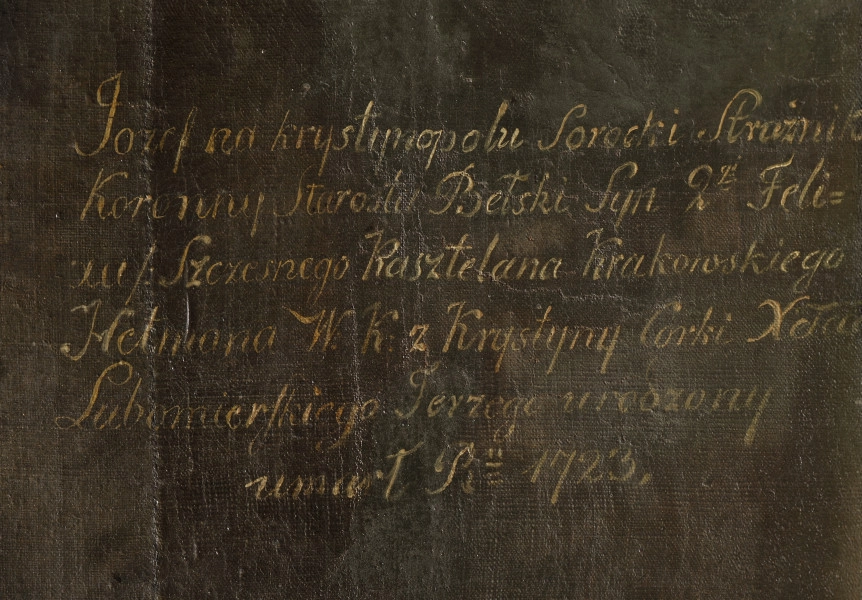 Jozef na krystynopolu Sorocki Strażnik
Koronny Starosta Bełski Syn 2gi Feli=
xa/ Szczesnego Kasztelana Krakowskiego
Hetmana W. K. z Krystyny Corki
Lubomierskiego Jerzego urodzony
umarł R: 1723.